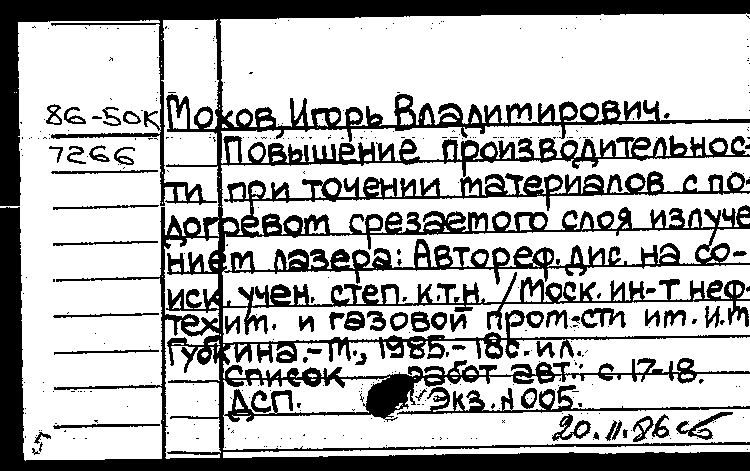 86-50к Мохов, Игорь Владимирович.
7266 Повышение производительнос-
ти при точении материалов с по-
догревом срезаемого слоя излуче-
нием лазера: Автореф. дис. на со-
иск. учен. степ. к.т.н. /Моск. ин-т неф-
техим. и газовой пром-сти им. И.М.
Губкина.-М., 1985.-18с. ил.
Список работ авт.: с.17-18.
ДСП. Экз.N005.
20.11.86
5